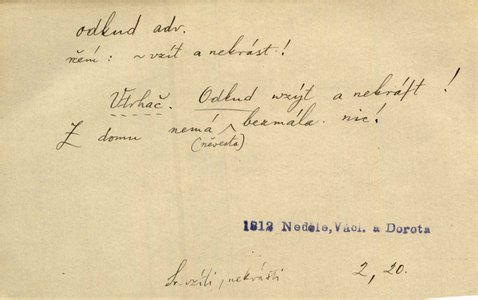 odkud adv.
není: ~ vzít a nekrást!
Utrhač. Odkud wzýt a nekráſt!
Z domu nemá (nevěsta) bezmála nic!
1812 Neděle, Václ. a Dorota
Sr. vzíti, nekrásti 2, 20.